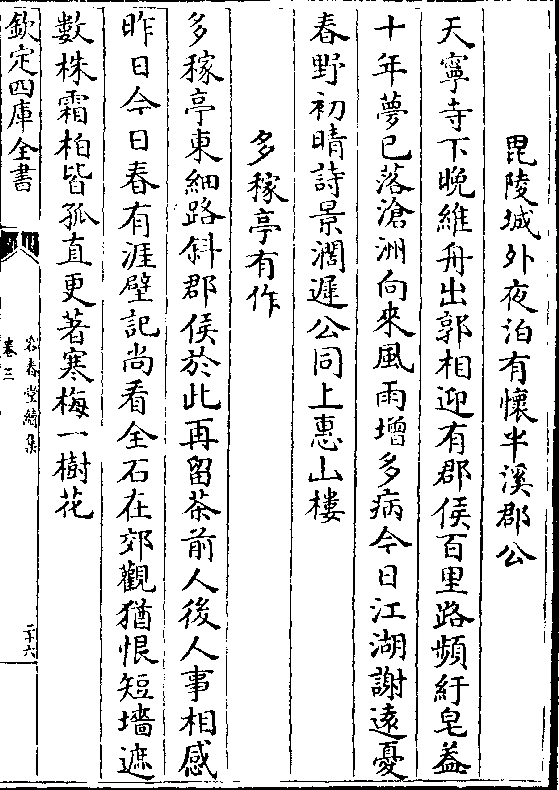 毘陵城外夜泊有懷半溪郡公
天寧寺下晚維舟出郭相迎有郡侯百里路頻紆皂蓋
十年夢已落滄洲向來風雨增多病今日江湖謝遠憂
春野初晴詩景濶遲公同上惠山樓
多稼亭有作
多稼亭東細路斜郡侯於此再留茶前人後人事相感
昨日今日春有涯壁記尚看全石在郊觀猶恨短墻遮
數株霜柏皆孤直更著寒梅一樹花
欽定四庫全書
容春堂續集
卷三
二十六